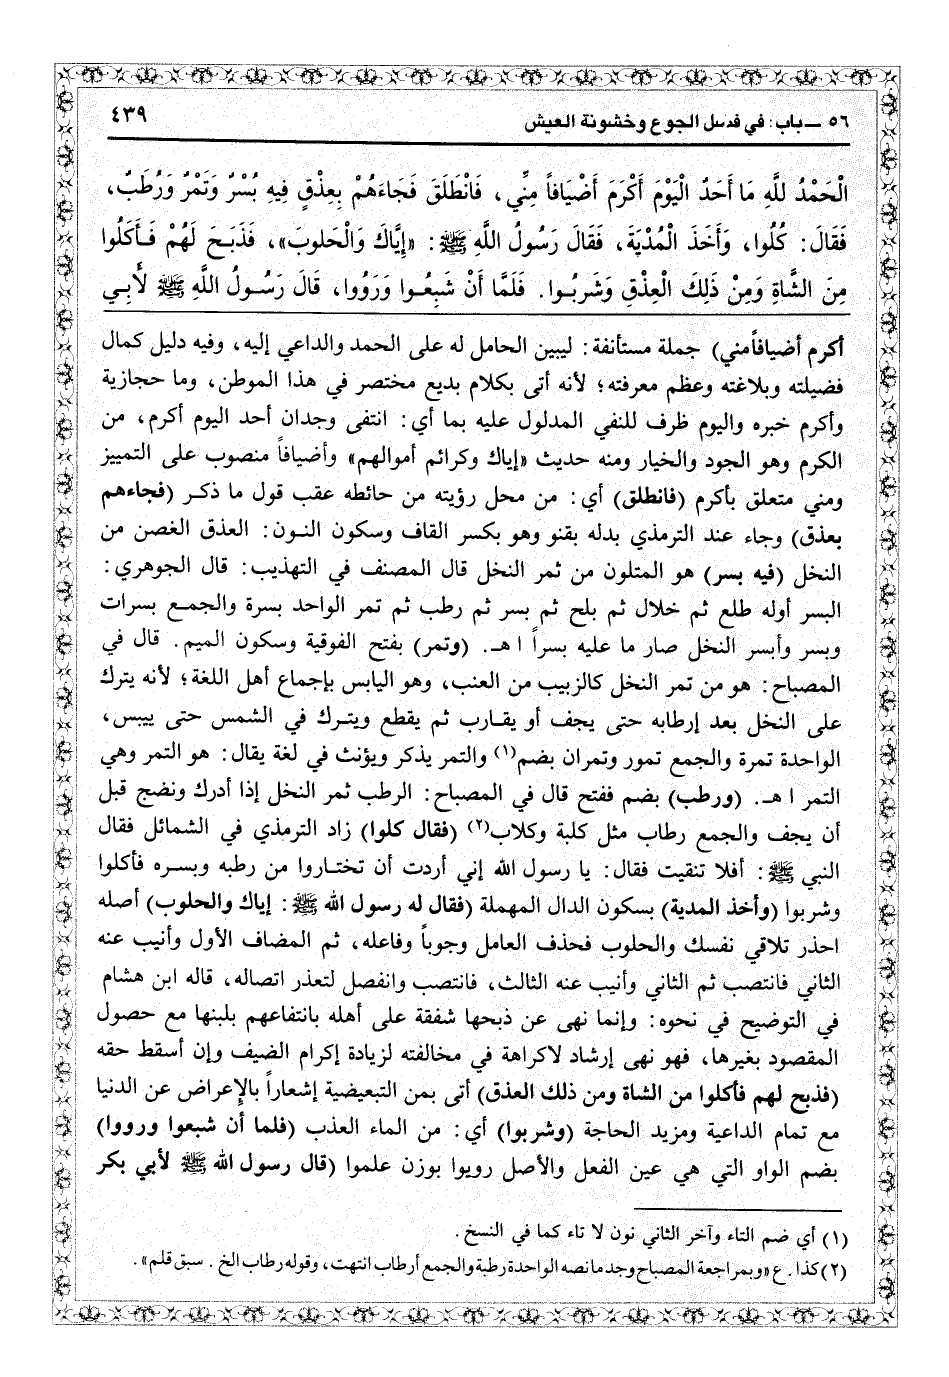 ٥٦ ـ باب: في فضل الجوع وخشونة العيش
٤٣٩
الْحَمْدُ للَّهِ مَا أَحَدٌ الْيَوْمَ أَكْرَمَ أَضْيَافاً مِنِّي، فَانْطَلَقَ فَجَاءَهُمْ بِعِذْقٍ فِيهِ بُسْرٌ وَتَمْرٌ وَرُطَبٌ،
فَقَالَ: كُلُوا، وَأَخَذَ الْمُدْيَةَ، فَقَالَ رَسُولُ اللَّهِ ﷺ: «إِيَّاكَ وَالْحَلوبَ»، فَذَبَحَ لَهُمْ فَأَكَلُوا
مِنَ الشَّاةِ وَمِنْ ذَلِكَ الْعِذْقِ وَشَرِبُوا. فَلَمَّا أَنْ شَبِعُوا وَرَوُوا، قَالَ رَسُولُ اللَّهِ ﷺ لأَبِي
أكرم أضيافاً مني) جملة مستأنفة: ليبين الحامل له على الحمد والداعي إليه، وفيه دليل كمال
فضيلته وبلاغته وعظم معرفته؛ لأنه أتى بكلام بديع مختصر في هذا الموطن، وما حجازية
وأكرم خبره واليوم ظرف للنفي المدلول عليه بما أي: انتفى وجدان أحد اليوم أكرم، من
الكرم وهو الجود والخيار ومنه حديث «إياك وكرائم أموالهم» وأضيافاً منصوب على التمييز
ومني متعلق بأكرم (فانطلق) أي: من محل رؤيته من حائطه عقب قول ما ذكر (فجاءهم
بعذق) وجاء عند الترمذي بدله بقنو وهو بكسر القاف وسكون النون: العذق الغصن من
النخل (فيه بسر) هو المتلون من ثمر النخل قال المصنف في التهذيب: قال الجوهري:
البسر أوله طلع ثم خلال ثم بلح ثم بسر ثم رطب ثم تمر الواحد بسرة والجمع بسرات
وبسر وأبسر النخل صار ما عليه بسراً اهـ. (وتمر) بفتح الفوقية وسكون الميم. قال في
المصباح: هو من تمر النخل كالزبيب من العنب، وهو اليابس بإجماع أهل اللغة؛ لأنه يترك
على النخل بعد إرطابه حتى يجف أو يقارب ثم يقطع ويترك في الشمس حتى ييبس،
الواحدة تمرة والجمع تمور وتمران بضم(١) والتمر يذكر ويؤنث في لغة يقال: هو التمر وهي
التمر اهـ. (ورطب) بضم ففتح قال في المصباح: الرطب ثمر النخل إذا أدرك ونضج قبل
أن يجف والجمع رطاب مثل كلبة وكلاب(٢) (فقال كلوا) زاد الترمذي في الشمائل فقال
النبي ﷺ: أفلا تنقيت فقال: يا رسول الله إني أردت أن تختاروا من رطبه وبسره فأكلوا
وشربوا (وأخذ المدية) بسكون الدال المهملة (فقال له رسول الله ﷺ: إياك والحلوب) أصله
احذر تلاقي نفسك والحلوب فحذف العامل وجوباً وفاعله، ثم المضاف الأول وأنيب عنه
الثاني فانتصب ثم الثاني وأنيب عنه الثالث، فانتصب وانفصل لتعذر اتصاله، قاله ابن هشام
في التوضيح في نحوه: وإنما نهى عن ذبحها شفقة على أهله بانتفاعهم بلبنها مع حصول
المقصود بغيرها، فهو نهي إرشاد لاكراهة في مخالفته لزيادة إكرام الضيف وإن أسقط حقه
(فذبح لهم فأكلوا من الشاة ومن ذلك العذق) أتى بمن التبعيضية إشعاراً بالإعراض عن الدنيا
مع تمام الداعية ومزيد الحاجة (وشربوا) أي: من الماء العذب (فلما أن شبعوا ورووا)
بضم الواو التي هي عين الفعل والأصل رويوا بوزن علموا (قال رسول الله ﷺ لأبي بكر
(١) أي ضم التاء وآخر الثاني نون لا تاء كما في النسخ.
(٢) كذا. ع «وبمراجعة المصباح وجد ما نصه الواحدة رطبة والجمع أرطاب انتهت، وقوله رطاب الخ. سبق قلم».